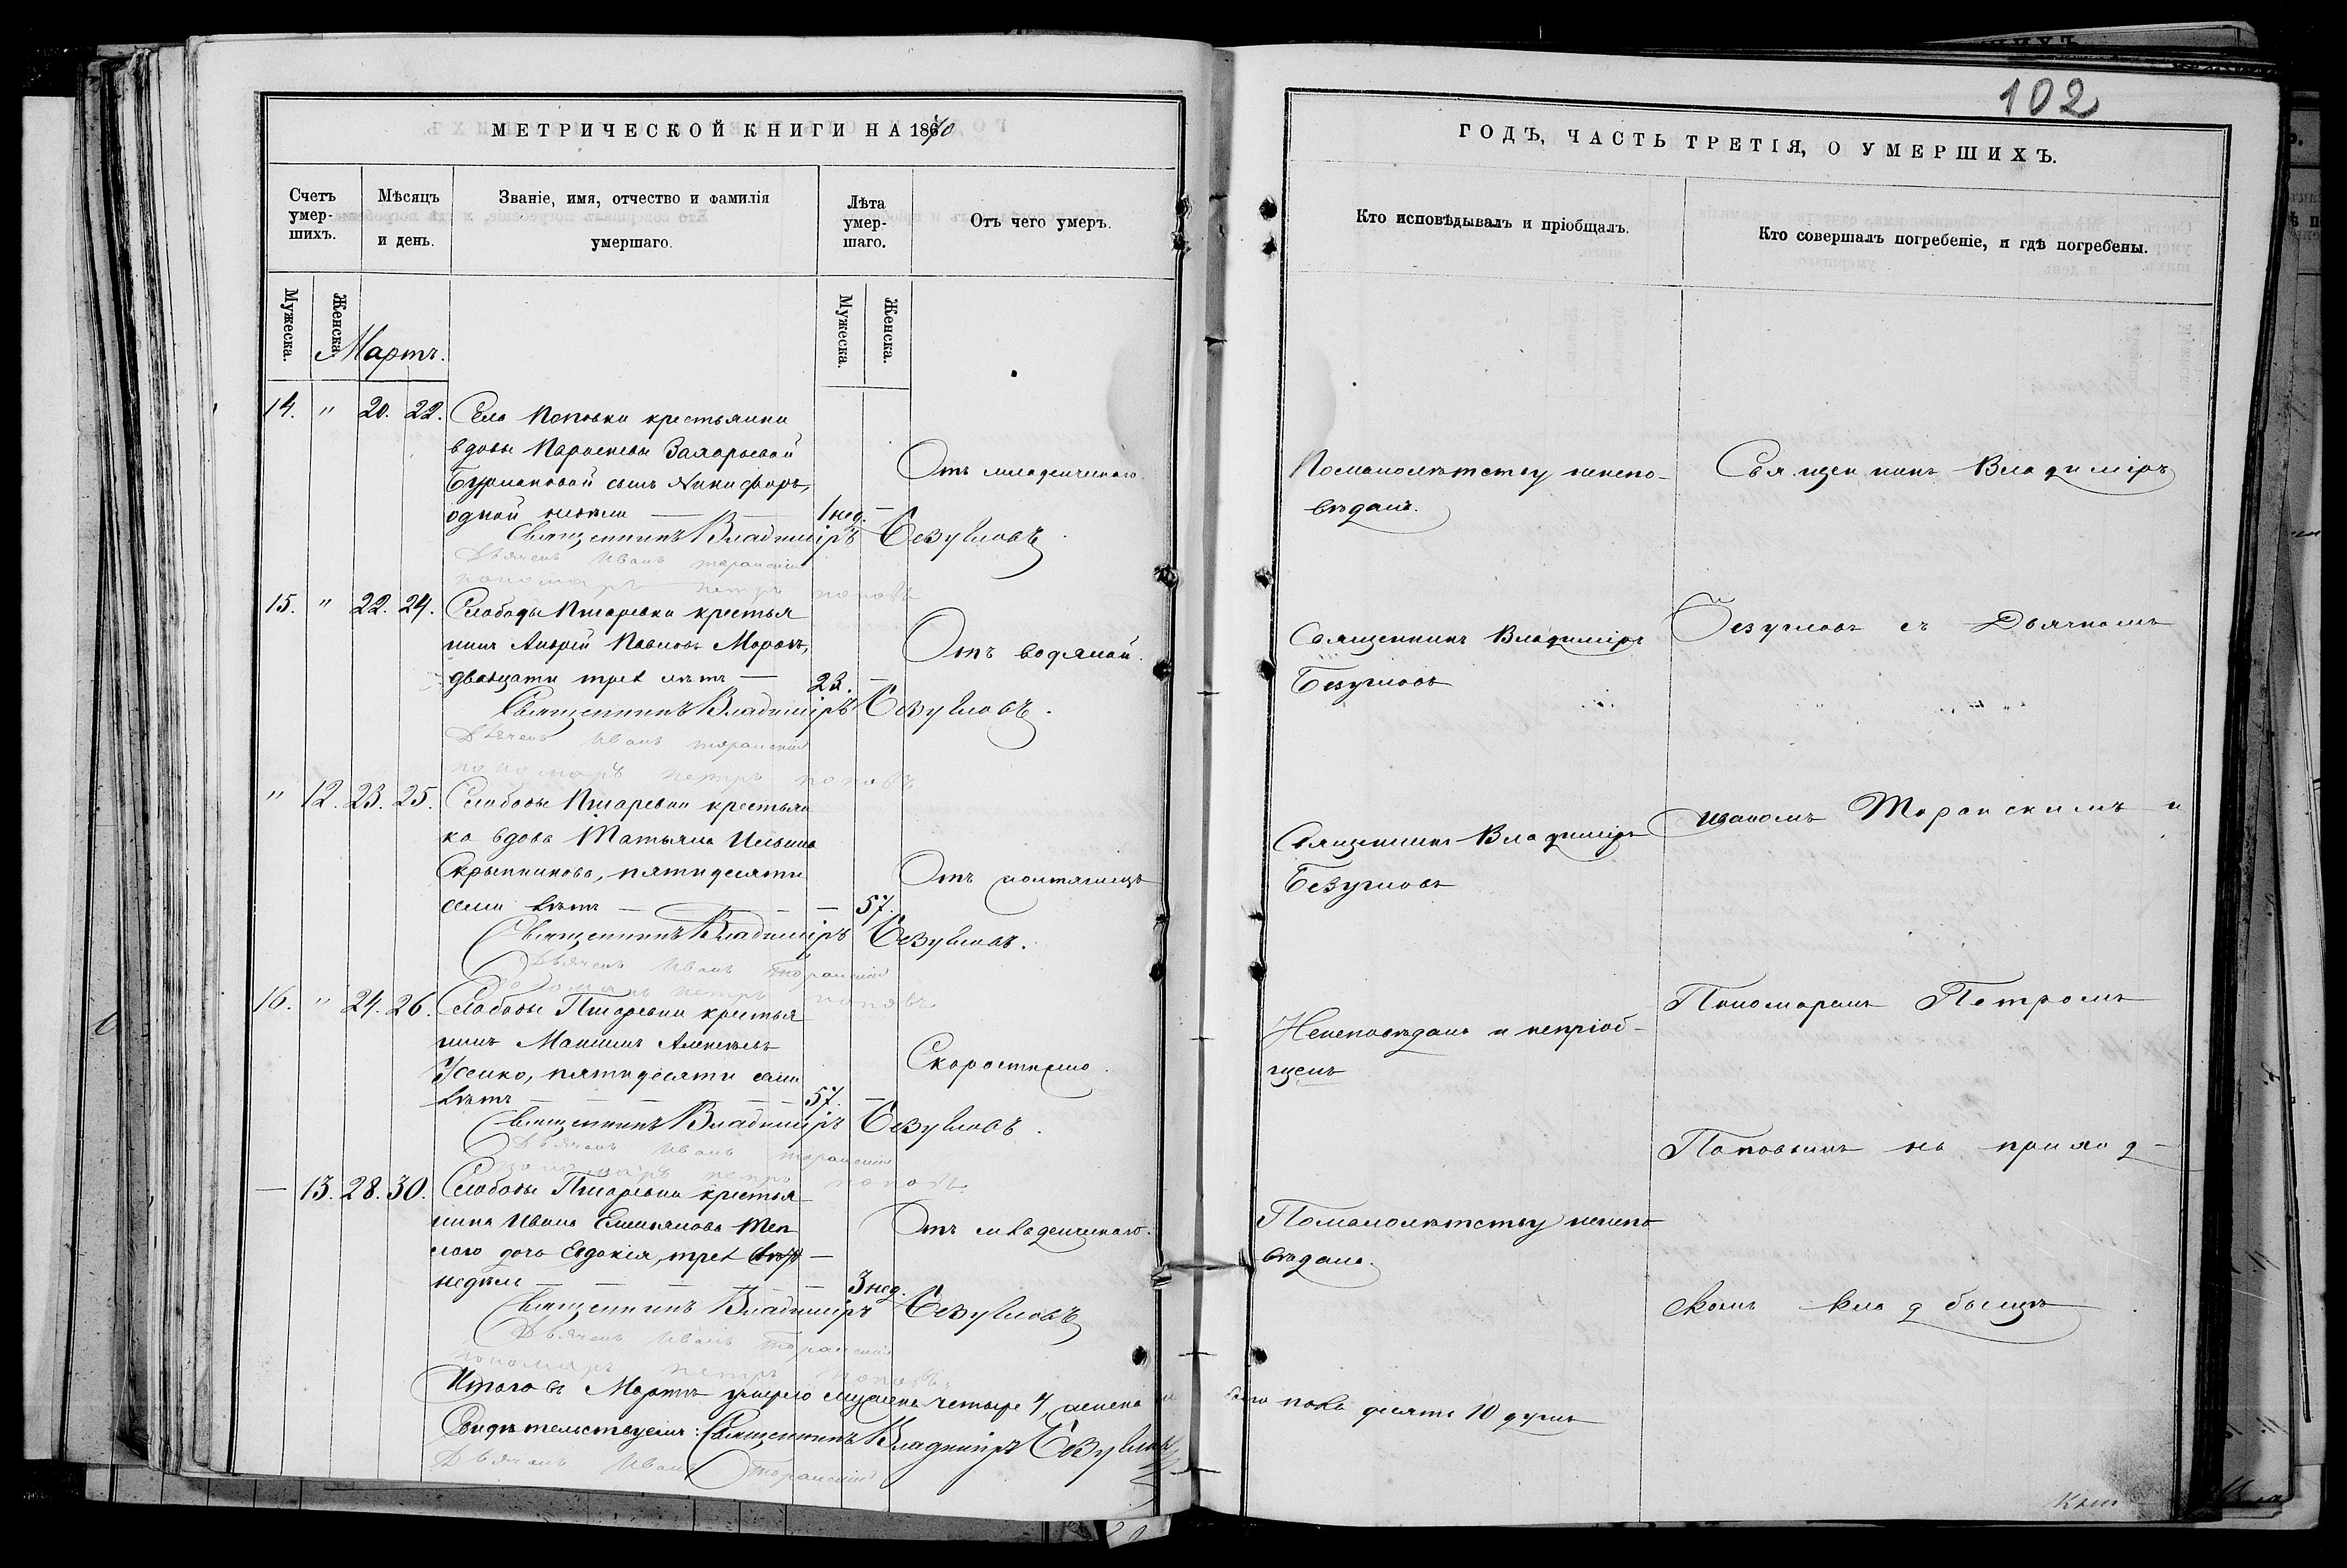 МЕТРИЧЕСКОЙ КНИГИ НА 1870
Счетъ умер-шихъ.
Мѣсяцъ и день.
Званіе, имя, отчество и фамилія умершаго.
Лѣта умер-шаго.
Отъ чего умеръ.
Мужеска.
Женска.
Мартъ.
Мужеска.
Женска.
14. " 20. 22. Села Поповки крестьянки
вдовы Параскевы Захарьевой
сынъ Никифоръ,
одной недѣли — 1 нед. —
Отъ младенческаго.
Священникъ Владиміръ Безугловъ
Дьячекъ Иванъ Торанскій
пономарь Петръ Поповъ
15. " 22. 24. Слободы Писаревки крестья
нинъ Андрей Павловъ Морозъ,
двадцати трехъ лѣтъ — 23. —
Отъ водяной.
Священникъ Владиміръ Безугловъ.
Дьячекъ Иванъ Торанскій
пономарь Петръ Поповъ
" 12. 23. 25. Слободы Писаревки крестьян
ка вдова Татьяна Ильина
Скрынникова, пятидесяти
семи лѣтъ — — — 57.
Отъ
Священникъ Владиміръ Безугловъ.
Дьячекъ Иванъ Торанскій
пономарь Петръ Поповъ
16. " 24. 26. Слободы Писаревки крестья
нинъ Максимъ Алексѣевъ
Усенко, пятидесяти семи
лѣтъ — — — 57. —
Скоропостижно.
Священникъ Владиміръ Безугловъ.
Дьячекъ Иванъ Торанскій
пономарь Петръ Поповъ.
— 13. 28. 30. Слободы Писаревки крестья
нина Ивана Емельянова
дочь Евдокія, трехъ
недѣль — — — 3 нед.
Отъ младенческаго.
Священникъ Владиміръ Безугловъ
Дьячекъ Иванъ Торанскій
пономарь Петръ Поповъ
Итого въ Мартѣ умерло мужеска четыре 4, женска
Свидѣтельствуемъ: Священникъ Владиміръ Безугловъ
Дьячекъ Иванъ Торанскій
102
ГОДЪ, ЧАСТЬ ТРЕТІЯ, О УМЕРШИХЪ.
Кто исповѣдывалъ и пріобщалъ.
Кто совершалъ погребеніе, и гдѣ погребены.
По малолѣтству неиспо-
вѣданъ.
Священникъ Владиміръ
Священникъ Владиміръ
Безугловъ
Безугловъ съ Дьячкомъ
Священникъ Владиміръ
Безугловъ
Иваномъ Торанскимъ и
Неисповѣданъ и непріоб-
щенъ
Пономаремъ Петромъ
Поповымъ на приход-
По малолѣтству неиспо
вѣдана.
скомъ кладбищѣ
пола десять 10 душъ